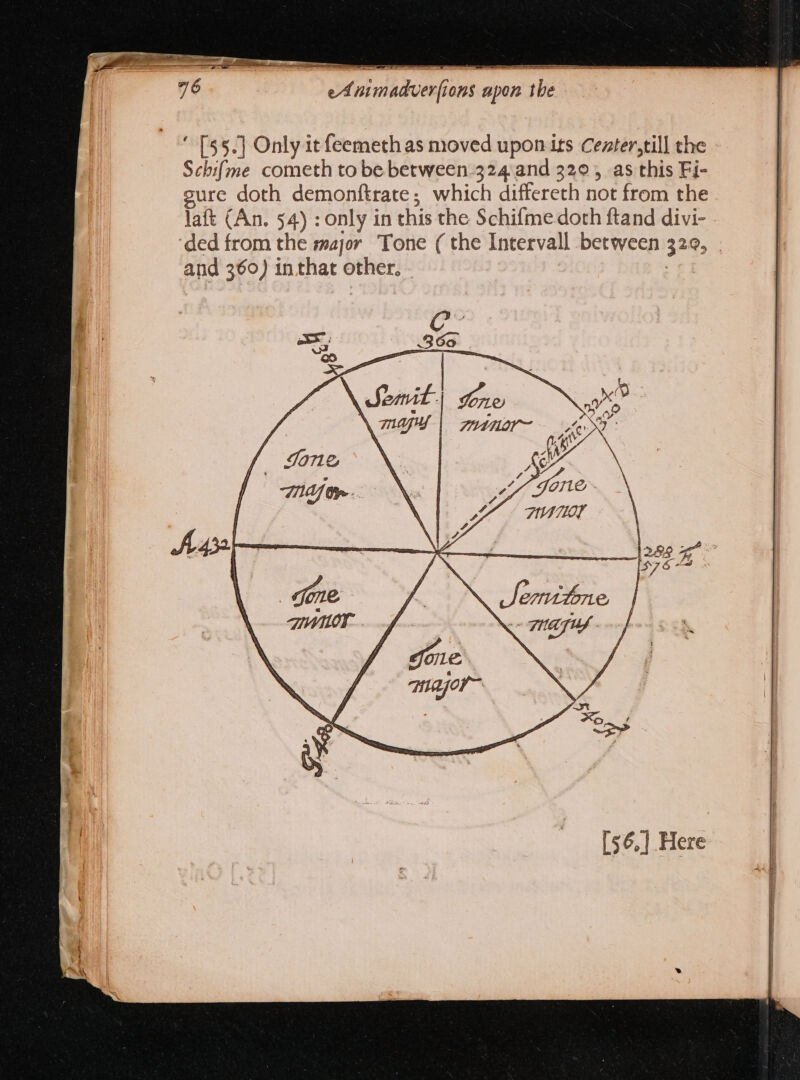 76 Animadverſions upon the
[55.] Only it ſeemeth as moved upon its Center, till the
Schiſme cometh to be between 324 and 320, as this Fi-
gure doth demonſtrate; which differeth not from the
laſt (An. 54) : only in this the Schiſme doth ſtand divi-
ded from the major Tone (the Intervall between 320,
and 360) in that other.
C
360
384
Semit.
majuſ
Tone
minor
324 D
320
Schiſme
Tone
major
Tone
minor
A 432
288
576
Tone
minor
Semitone
majuſ
Tone
major
G 480
540 F
[56.] Here